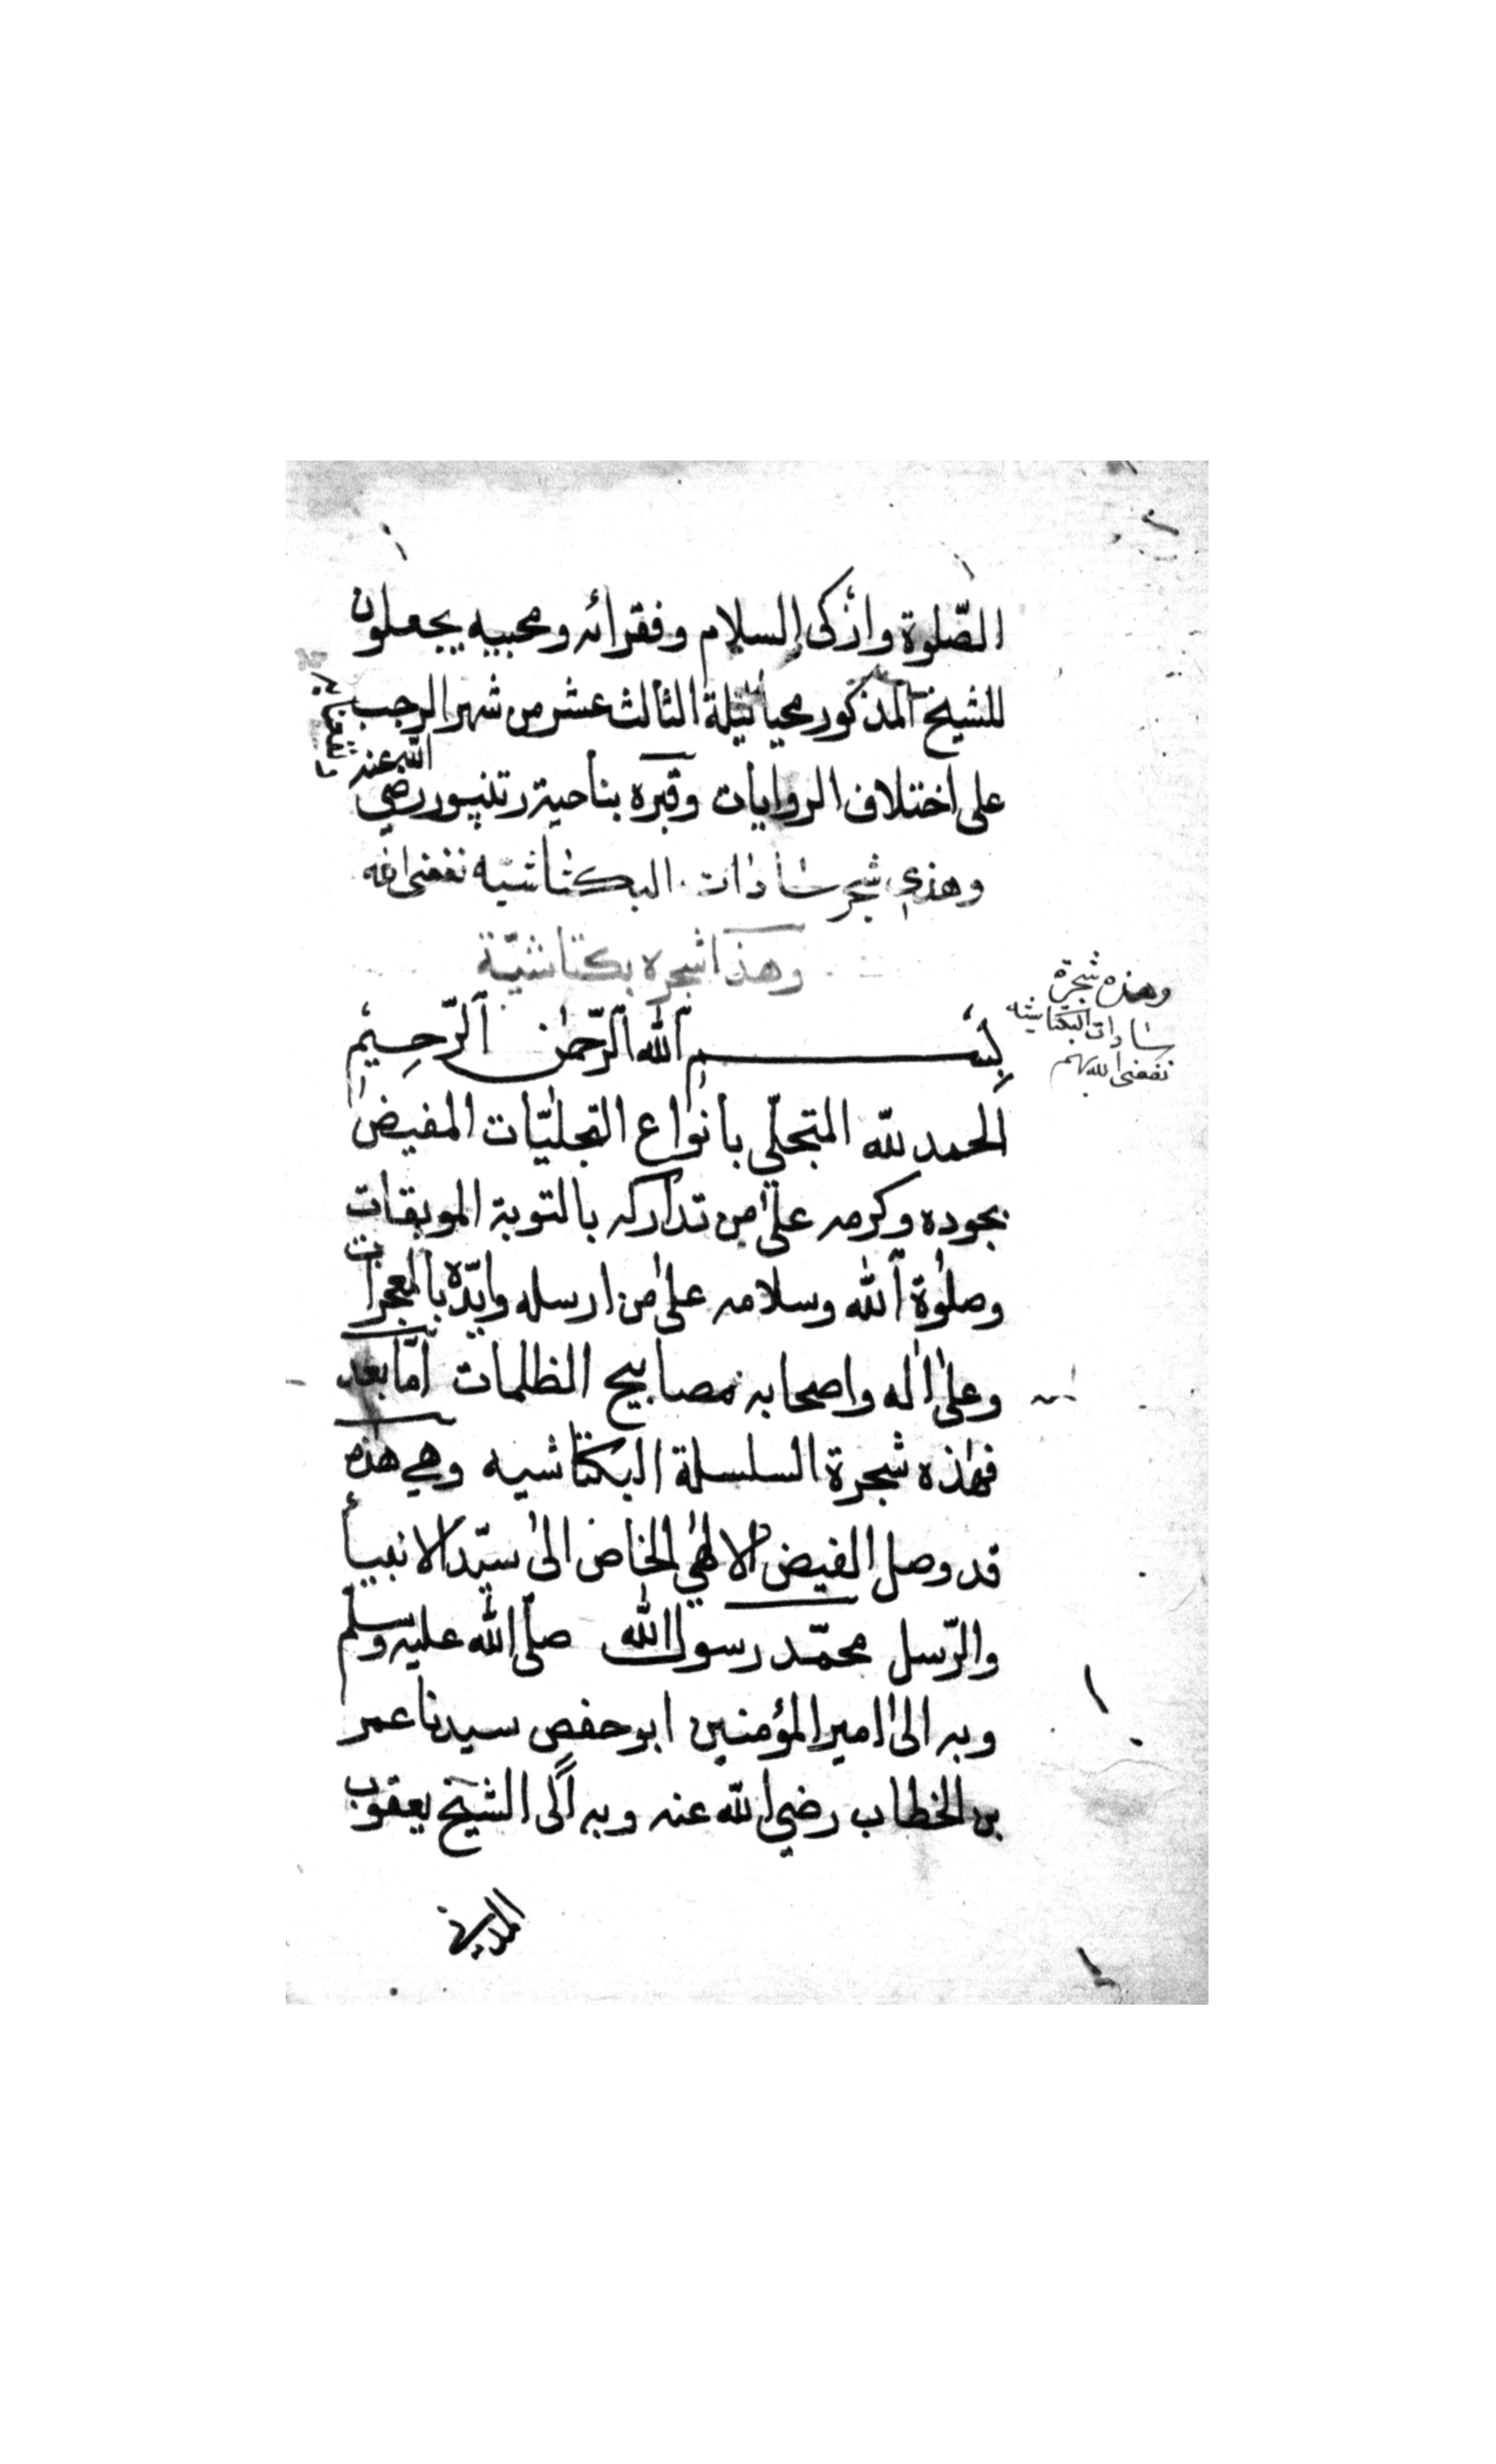 الصّلوة وازكى السلام وفقرائه ومحبيه يجعلون
للشيخ المذكور محيا ليلة الثالث عشر من شهر الرجب
على اختلاف الروايات وقبره بناحية رتنپور رضي
الله عنه
وهذه شجر سادات البكتاشيّه نفعنى الله
وهذا شجره بكتاشيّة
وهذه شجرة
سادات البكتاشيه
نفعنى الله بهم
بسم الله الرّحمٰن الرّحيم
الحمد للّه المتجلّي بانواع التجليّات المفيض
بجوده وكرمه علىٰ من تداركه بالتوبة الموبقات
وصلوٰة اللّٰه وسلامه علىٰ من ارسله وايّده بالمعجزات
وعلىٰ اٰله واصحابه مصابيح الظلمات امّا بعد
فهٰذه شجرة السلسلة البكتاشيه وهي هذه
قد وصل الفيض الالٰهي الخاص الىٰ سيّد الانبيأ
والرّسل محمّد رسول اللّٰه صلّى اللّٰه عليه وسلّم
وبه الىٰ امير المؤمنين ابو حفص سيدنا عمر
بن الخطاب رضي اللّه عنه وبه الى الشيخ يعقوب